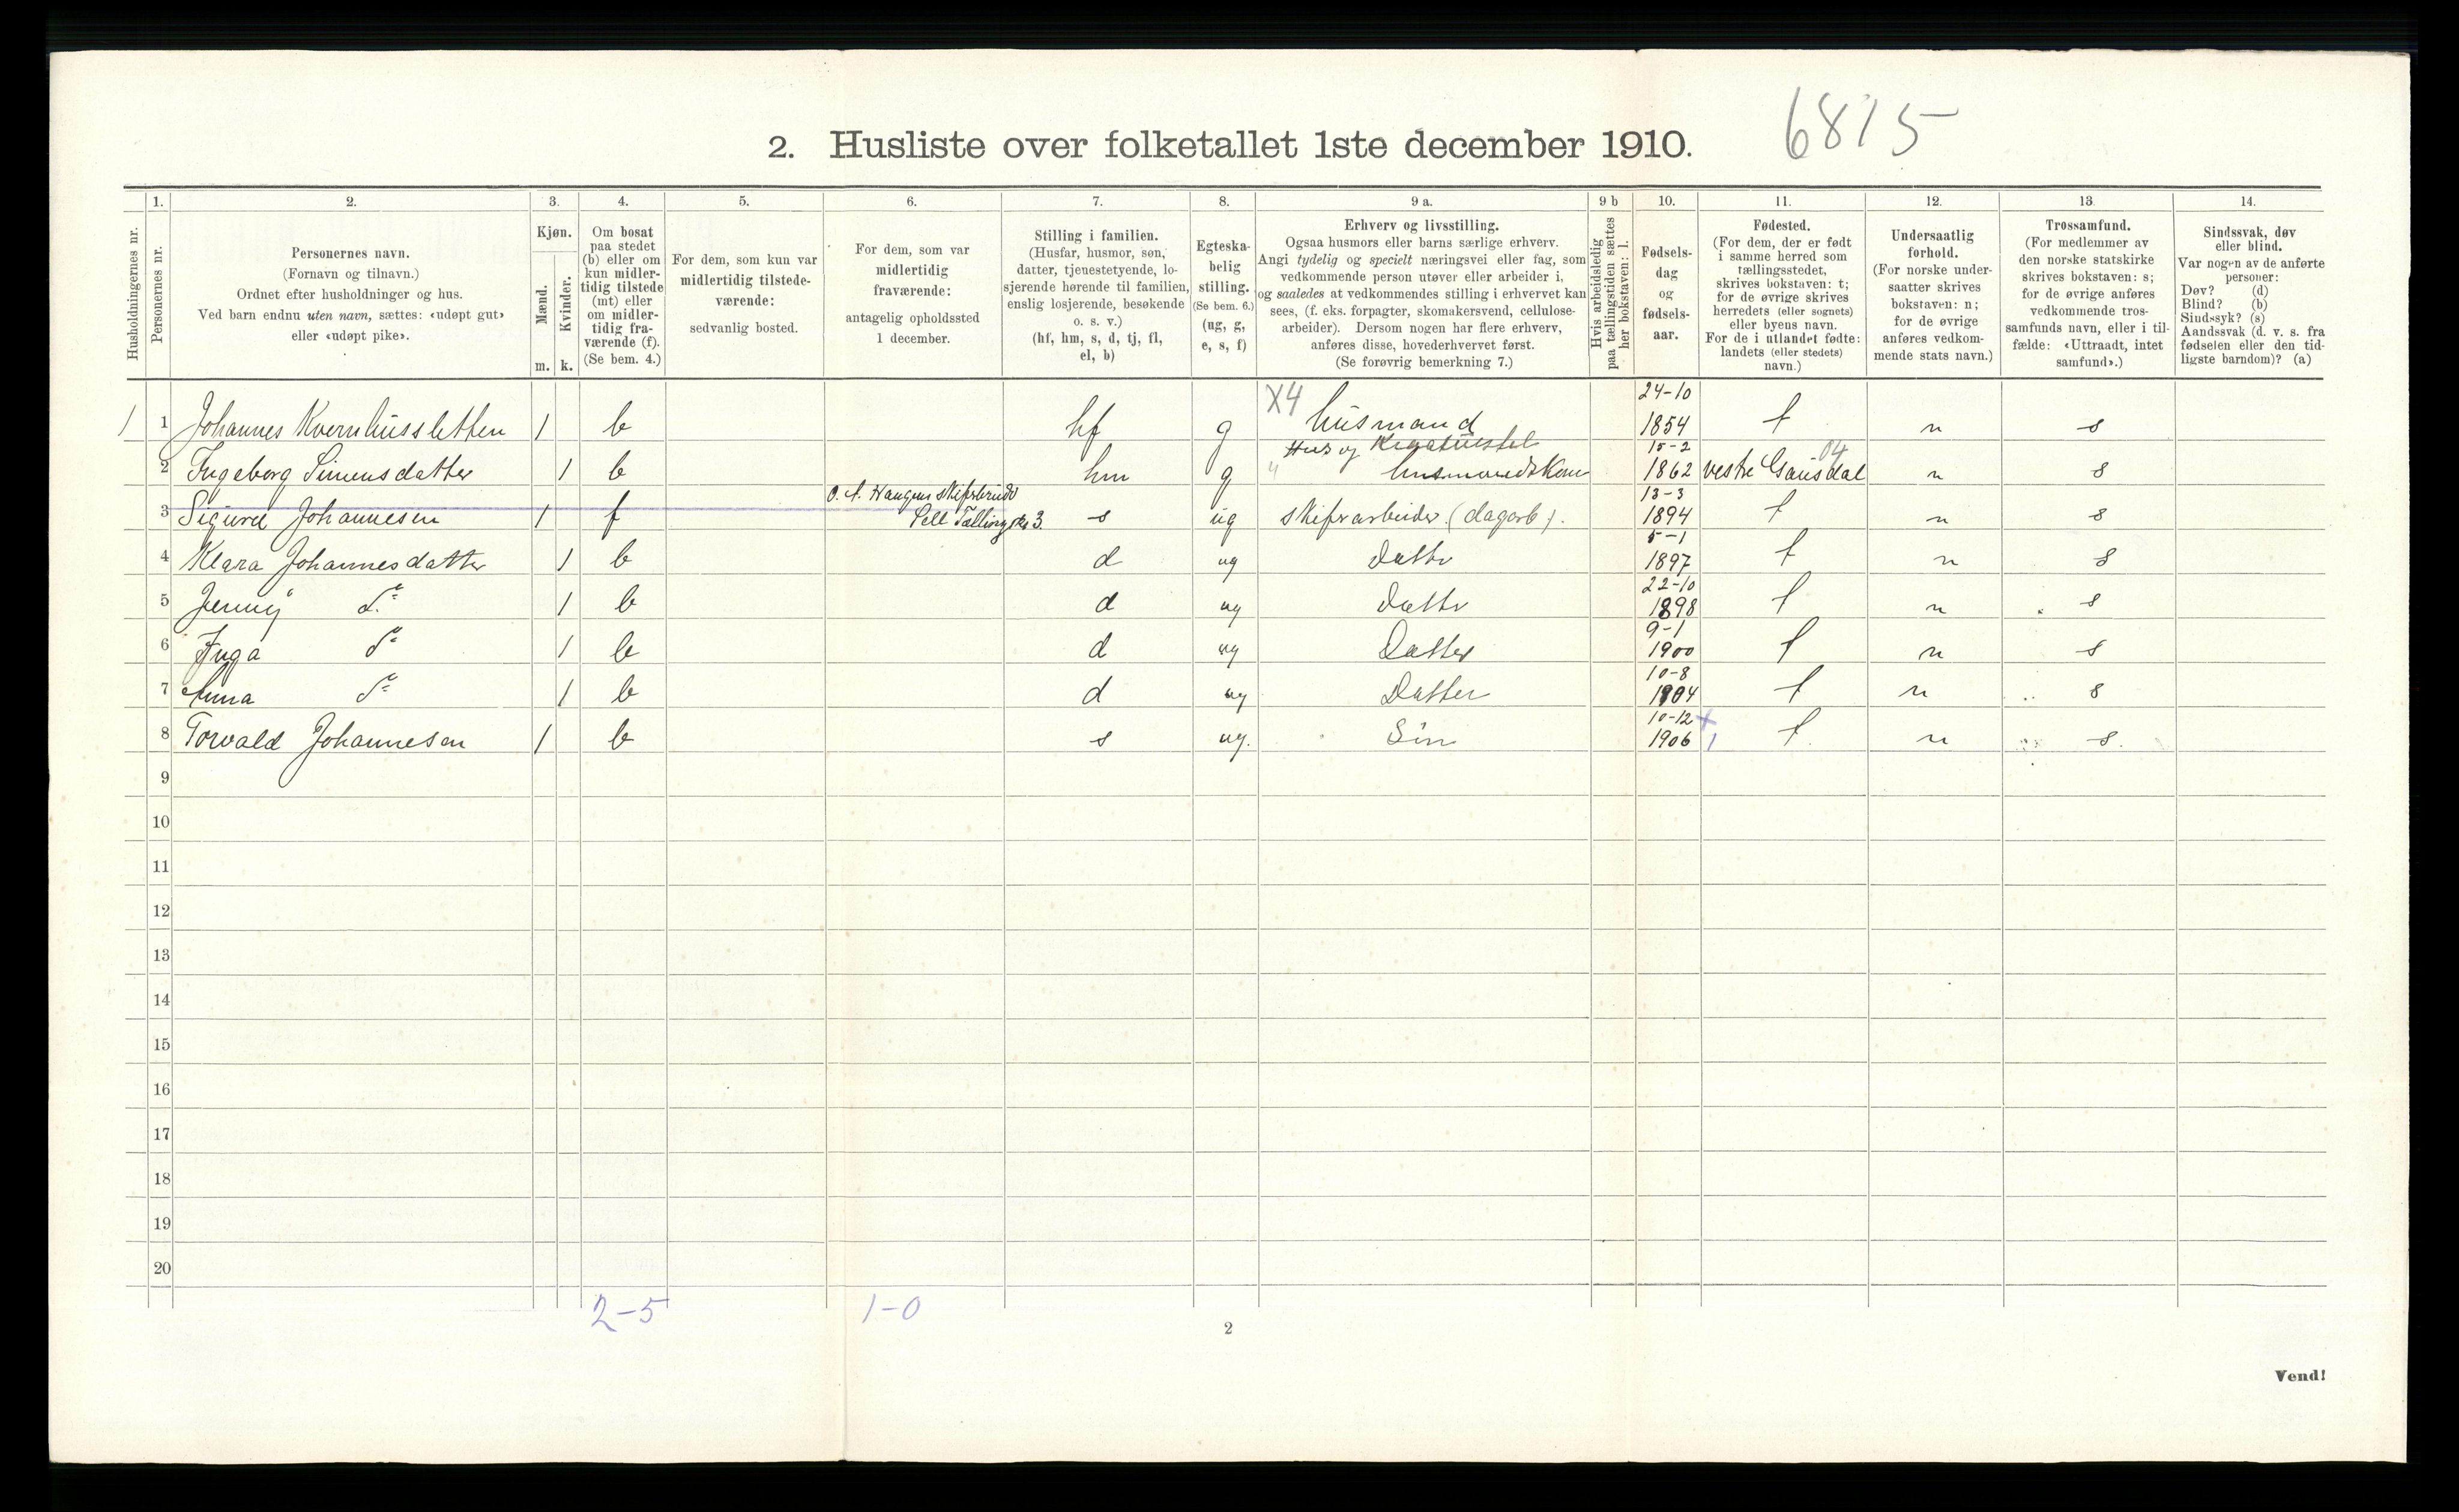 6815
2. Husliste over folketallet 1ste december 1910.
Husholdningernes nr.
1.
Personernes nr.
2.
Personernes navn.
(Fornavn og tilnavn.)
Ordnet efter husholdninger og hus.
Ved barn endnu uten navn, sættes: «udøpt gut»
eller «udøpt pike».
3.
Kjøn.
Mænd.
m.
Kvinder.
k.
4.
Om bosat
paa stedet
(b) eller om
kun midler-
tidig tilstede
(mt) eller
om midler-
tidig fra-
værende (f).
(Se bem. 4.)
5.
For dem, som kun var
midlertidig tilstede-
værende:
sedvanlig bosted.
6.
For dem, som var
midlertidig
fraværende:
antagelig opholdssted
1 december.
7.
Stilling i familien.
(Husfar, husmor, søn,
datter, tjenestetyende, lo-
sjerende hørende til familien,
enslig losjerende, besøkende
o. s. v.)
(hf, hm, s, d, tj, fl,
el, b)
8.
Egteska-
belig
stilling.
(Se bem. 6.)
(ug, g,
e, s, f)
9 a.
Erhverv og livsstilling.
Ogsaa husmors eller barns særlige erhverv.
Angi tydelig og specielt næringsvei eller fag, som
vedkommende person utøver eller arbeider i,
og saaledes at vedkommendes stilling i erhvervet kan
sees, (f. eks. forpagter, skomakersvend, cellulose-
arbeider). Dersom nogen har flere erhverv,
anføres disse, hovederhvervet først.
(Se forøvrig bemerkning 7.)
9 b
Hvis arbeidsledig
paa tællingstiden sættes
her bokstaven: l.
10.
Fødsels-
dag
og
fødsels-
aar.
11.
Fødested.
(For dem, der er født
i samme herred som
tællingsstedet,
skrives bokstaven: t;
for de øvrige skrives
herredets (eller sognets)
eller byens navn.
For de i utlandet fødte:
landets (eller stedets)
navn.)
12.
Undersaatlig
forhold.
(For norske under-
saatter skrives
bokstaven: n;
for de øvrige
anføres vedkom-
mende stats navn.)
13.
Trossamfund.
(For medlemmer av
den norske statskirke
skrives bokstaven: s;
for de øvrige anføres
vedkommende tros-
samfunds navn, eller i til-
fælde: «Uttraadt, intet
samfund».)
14.
Sindssvak, døv
eller blind.
Var nogen av de anførte
personer:
Døv? (d)
Blind? (b)
Sindssyk? (s)
Aandssvak (d. v. s. fra
fødselen eller den tid-
ligste barndom)? (a)
1 1 Johannes Kvernhussletten 1 b hf g X4 husmand 24-10 1854 t n s
Hus og
2 Ingeborg Simensdatter 1 b hm g " husmandskone 15-2 1862 vestre Gausdal 04 n s
3 Sigurd Johannesen 1 f Sell Tællingskr 3. s ug skiferarbeider (dagarb). 13-3 1894 t n s
4 Klara Johannesdatter 1 b d ug Datter 5-1 1897 t n s
5 Jenny do 1 b d ug Datter 22-10 1898 t n s
6 Inga do 1 b d ug Datter 9-1 1900 t n s
7 Anna do 1 b d ug Datter 10-8 1904 t n s
8 Torvald Johannesen 1 b s ug. Sön 10-12 1906 x 1 t n s.
9
10
11
12
13
14
15
16
17
18
19
20
2-5 1-0
2
Vend!